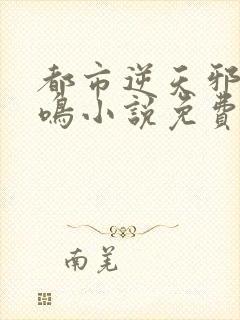 都市逆天邪
鳴小說免費
南羌